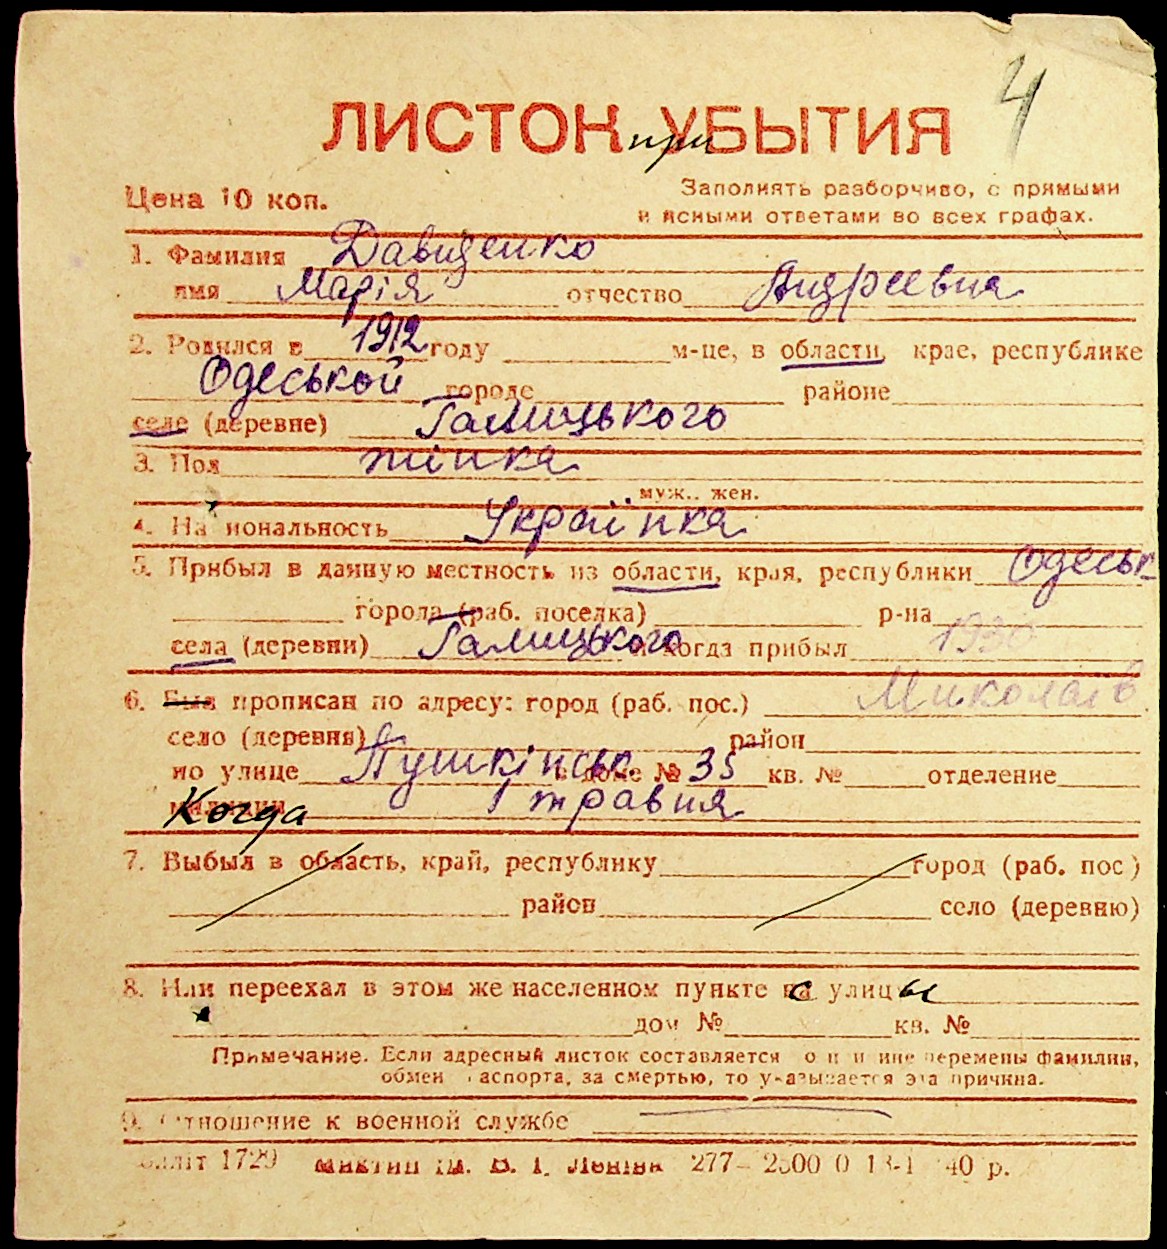 4
ЛИСТОК при УБЫТИЯ
Цена 10 коп.
Заполнять разборчиво, с прямыми
и ясными ответами во всех графах.
1. Фамилия Давиденко
имя Марія отчество Андреевна
2. Родился в 1912 году м-це, в области, крае, республике
Одеськой городе районе
селе (деревне) Галицького
3. Пол жінка
муж., жен.
4. Национальность Українка
5. Прибыл в данную местность из области, края, республики Одеськ
города (раб. поселка) р-на
села (деревни) Галицького и когда прибыл
6. Был прописан по адресу: город (раб. пос.) Миколаїв
село (деревня) район
по улице Пушкінськ. в доме № 35 кв. № отделение
милиции Когда 1 травня
7. Выбыл в область, край, республику город (раб. пос)
район село (деревню)
8. Или переехал в этом же населенном пункте с улицы
дом № кв. №
Примечание. Если адресный листок составляется перемены фамилии,
обмен паспорта, за смертью, то указывается эта причина.
9. Отношение к военной службе
1729 им. В. І. Леніна 277— 40 р.